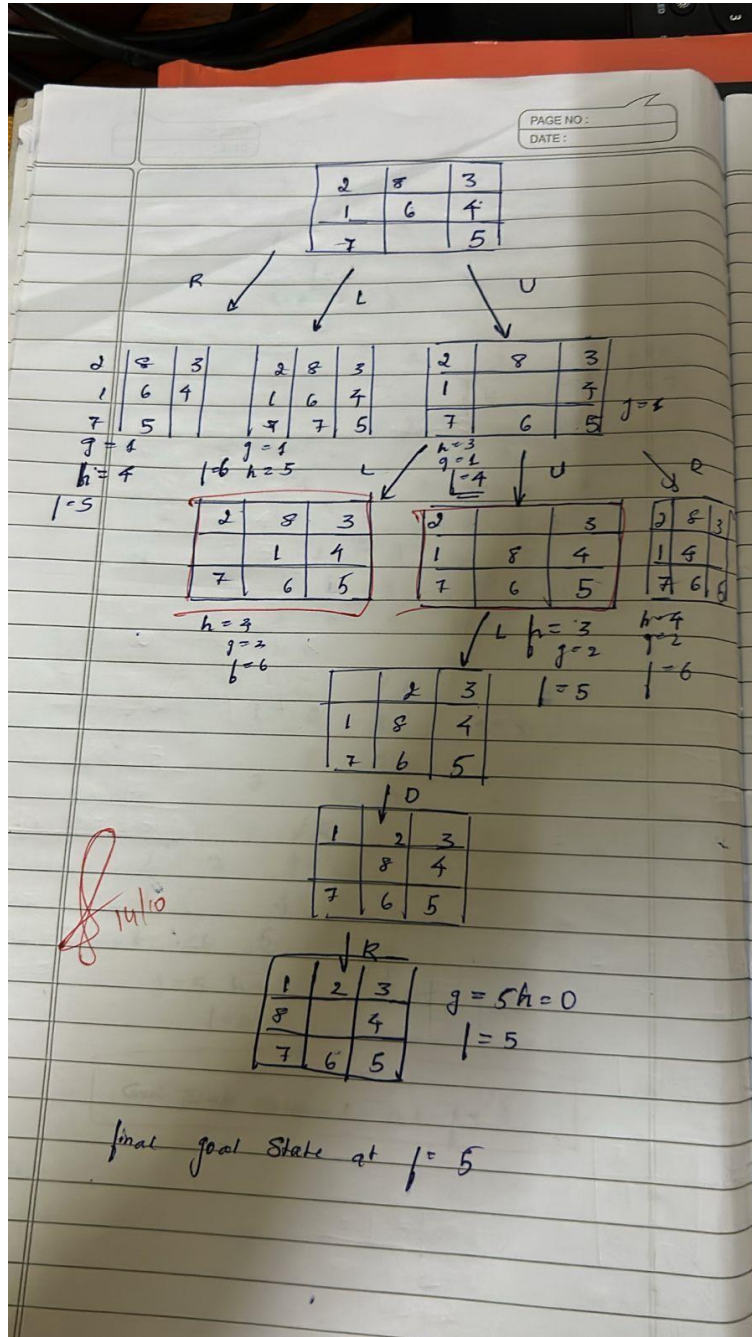 PAGE NO :
DATE :
2 8 3
1 6 4
7 5
R L U
2 8 3
1 6 4
7 5
g = 1
h = 4
f = 5
2 8 3
1 6 4
7 5
g = 1
f = 6 h = 5
2 8 3
1 4
7 6 5
g = 1
h = 3
g = 1
f = 4
L U R
2 8 3
1 4
7 6 5
h = 3
f = 6
2 3
1 8 4
7 6 5
h = 3
g = 2
f = 5
2 8 3
1 4
7 6
h = 4
g = 2
f = 6
L
2 3
1 8 4
7 6 5
D
1 2 3
8 4
7 6 5
14/10
R
1 2 3
8 4
7 6 5
g = 5 h = 0
f = 5
final goal State at f = 5